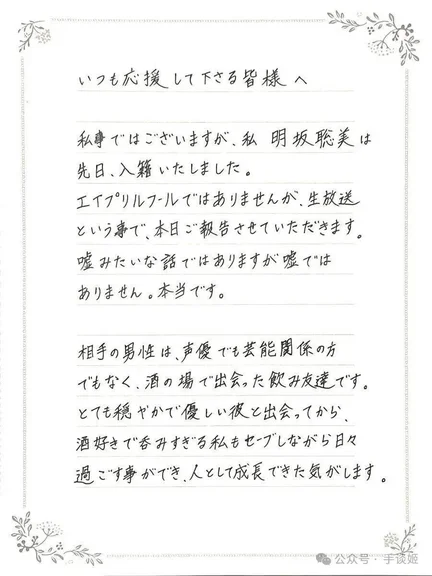 いつも応援して下さる皆様へ
私事ではございますが、私 明坂聡美は
先日、入籍いたしました。
エイプリルフールではありませんが、生放送
という事で、本日ご報告させていただきます。
嘘みたいな話ではありますが嘘では
ありません。本当です。
相手の男性は、声優でも芸能関係の方
でもなく、酒の場で出会った飲み友達です。
とても穏やかで優しい彼と出会ってから、
酒好きで呑みすぎる私もセーブしながら日々
過ごす事ができ、人として成長できた気がします。
公众号・手谈姬